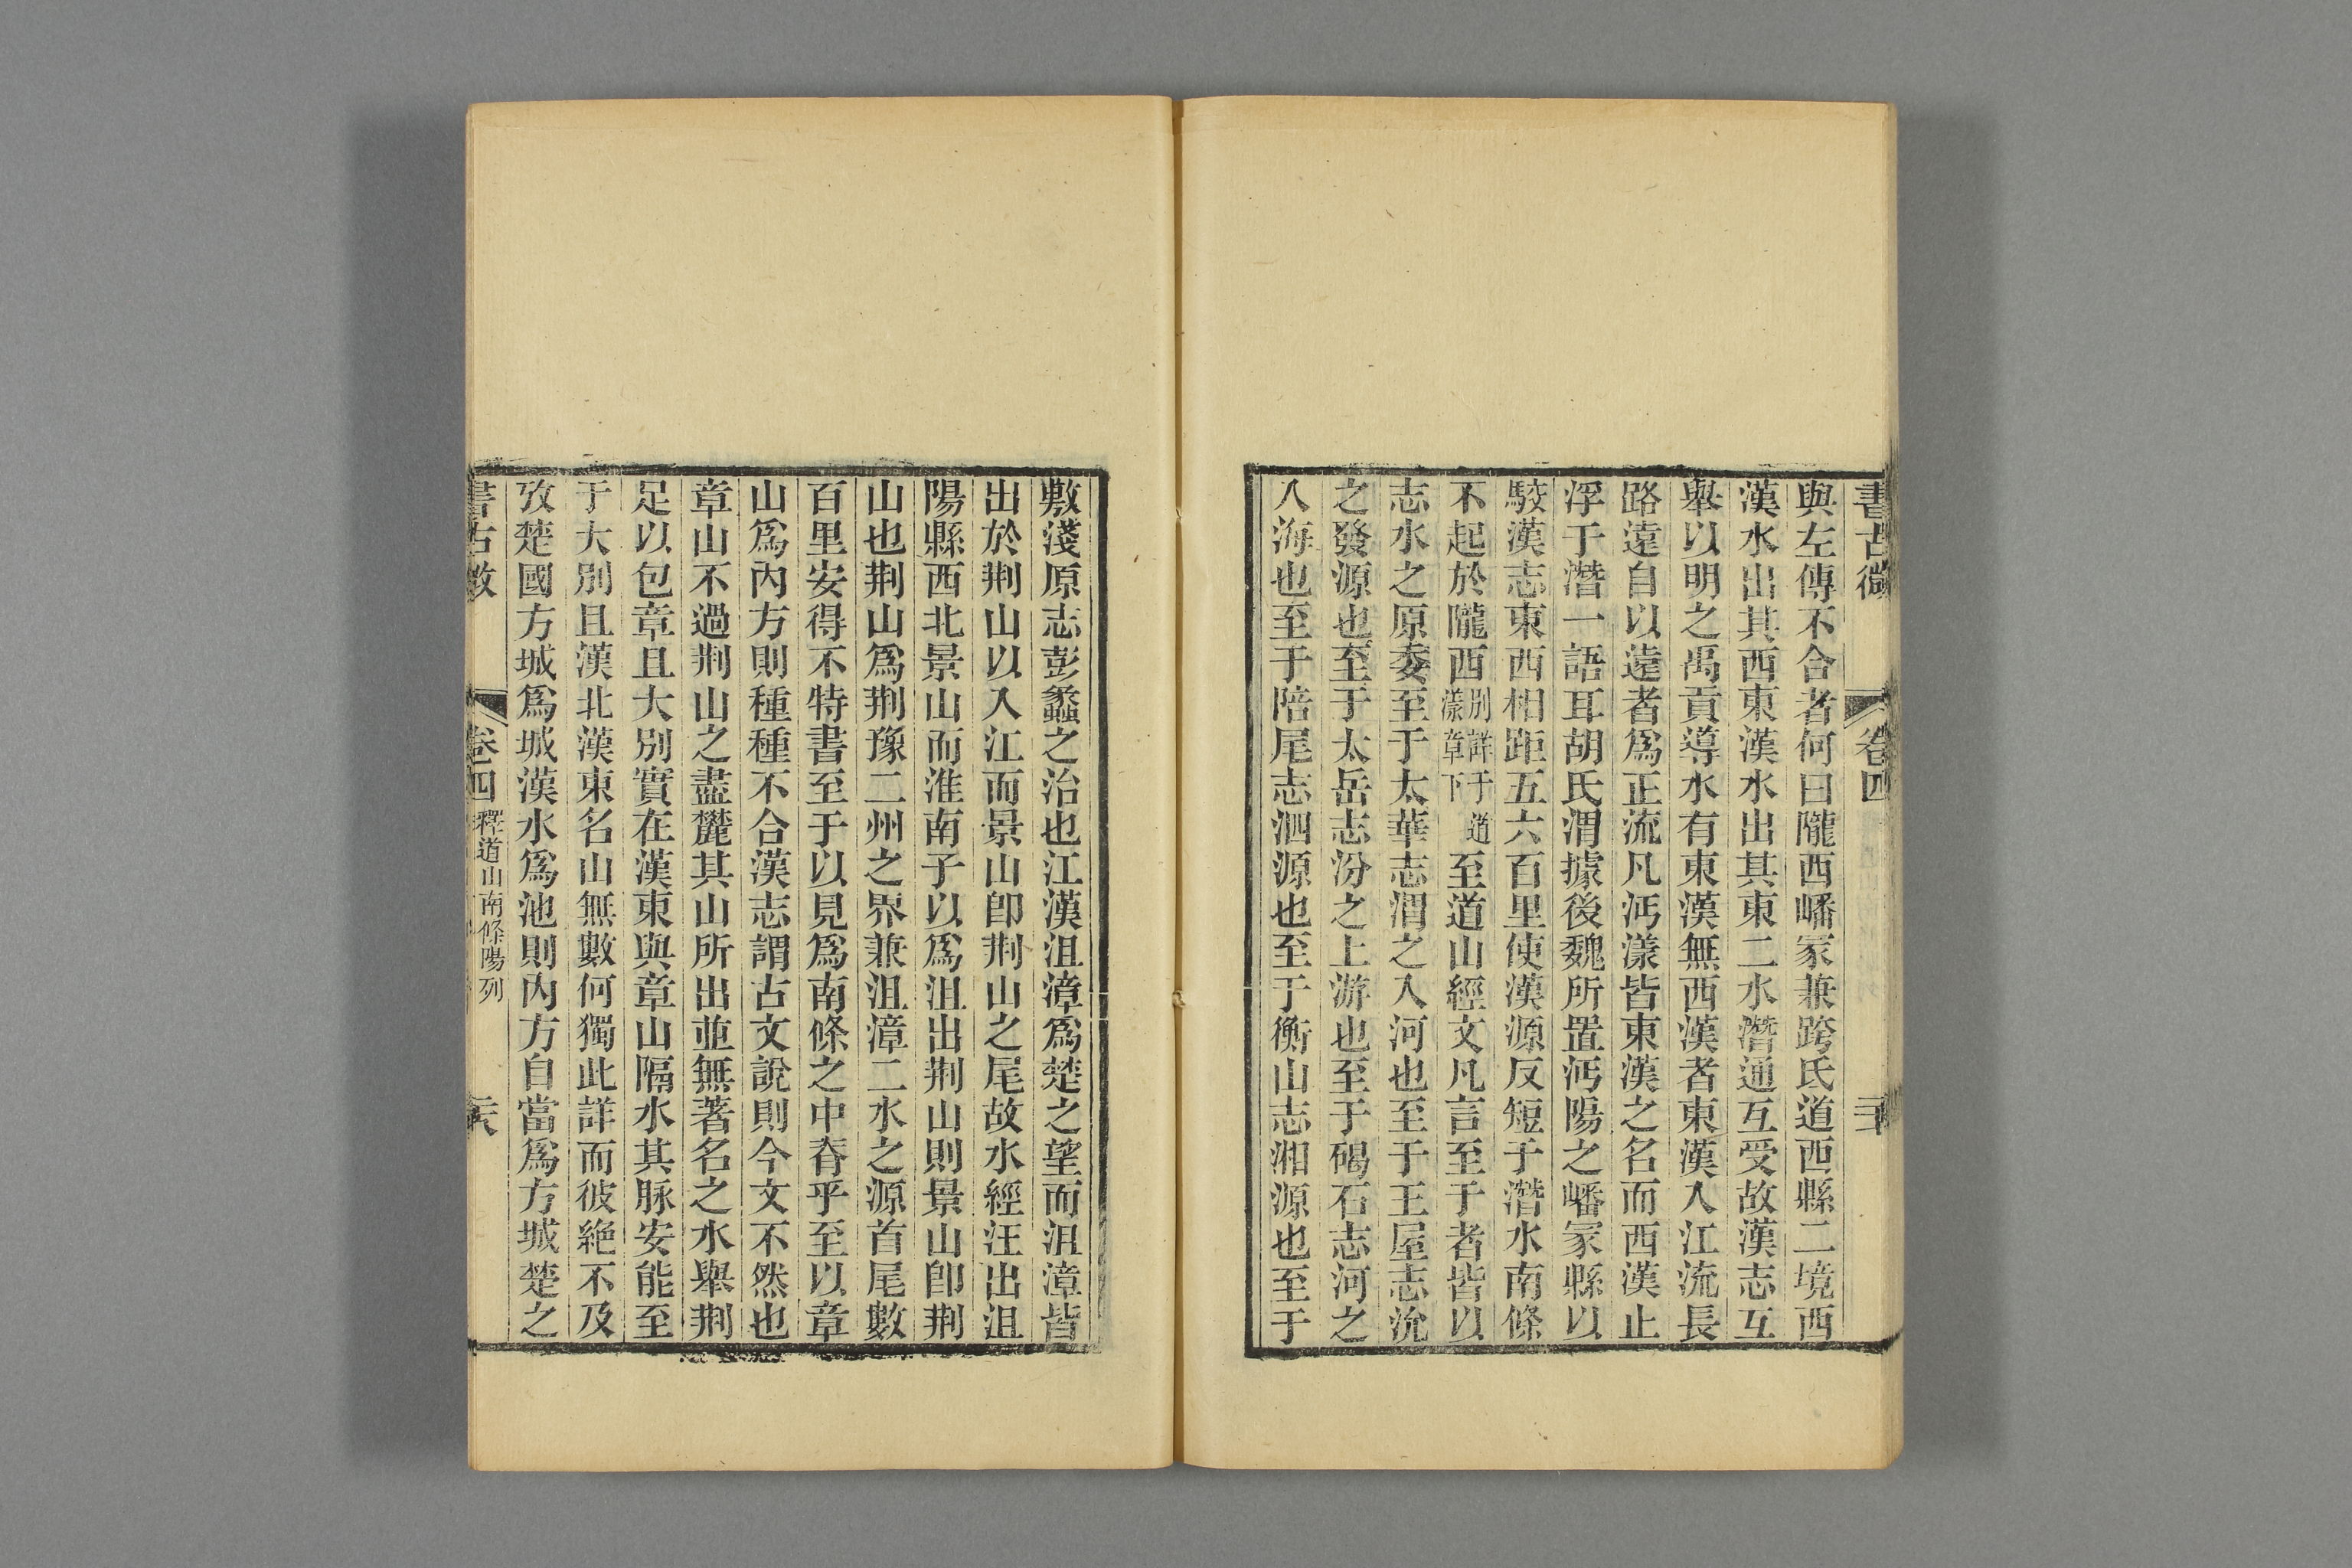 書古微
卷四
與左傳不合者何曰隴西嶓冢兼跨氐道西縣二境西
漢水出其西東漢水出其東二水潛通互受故漢志互
舉以明之禹貢導水有東漢無西漢者東漢入江流長
路遠自以遠者爲正流凡沔漾皆東漢之名而西漢止
浮于潛一語耳胡氏渭據後魏所置沔陽之嶓冢縣以
駮漢志東西相距五六百里使漢源反短于潛水南條
不起於隴西別詳于道漾章下至道山經文凡言至于者皆以
志水之原委至于太華志渭之入河也至于王屋志沇
之發源也至于太岳志汾之上游也至于碣石志河之
入海也至于陪尾志泗源也至于衡山志湘源也至于
敷淺原志彭蠡之治也江漢沮漳爲楚之望而沮漳皆
出於荆山以入江而景山卽荆山之尾故水經汪出沮
陽縣西北景山而淮南子以爲沮出荆山則景山卽荆
山也荆山爲荆豫二州之界兼沮漳二水之源首尾數
百里安得不特書至于以見爲南條之中脊乎至以章
山爲內方則種種不合漢志謂古文說則今文不然也
章山不過荆山之盡麓其山所出並無著名之水舉荆
足以包章且大別實在漢東與章山隔水其脉安能至
于大別且漢北漢東名山無數何獨此詳而彼絶不及
攷楚國方城爲城漢水爲池則內方自當爲方城楚之
書古微
卷四
釋道山南條陽列